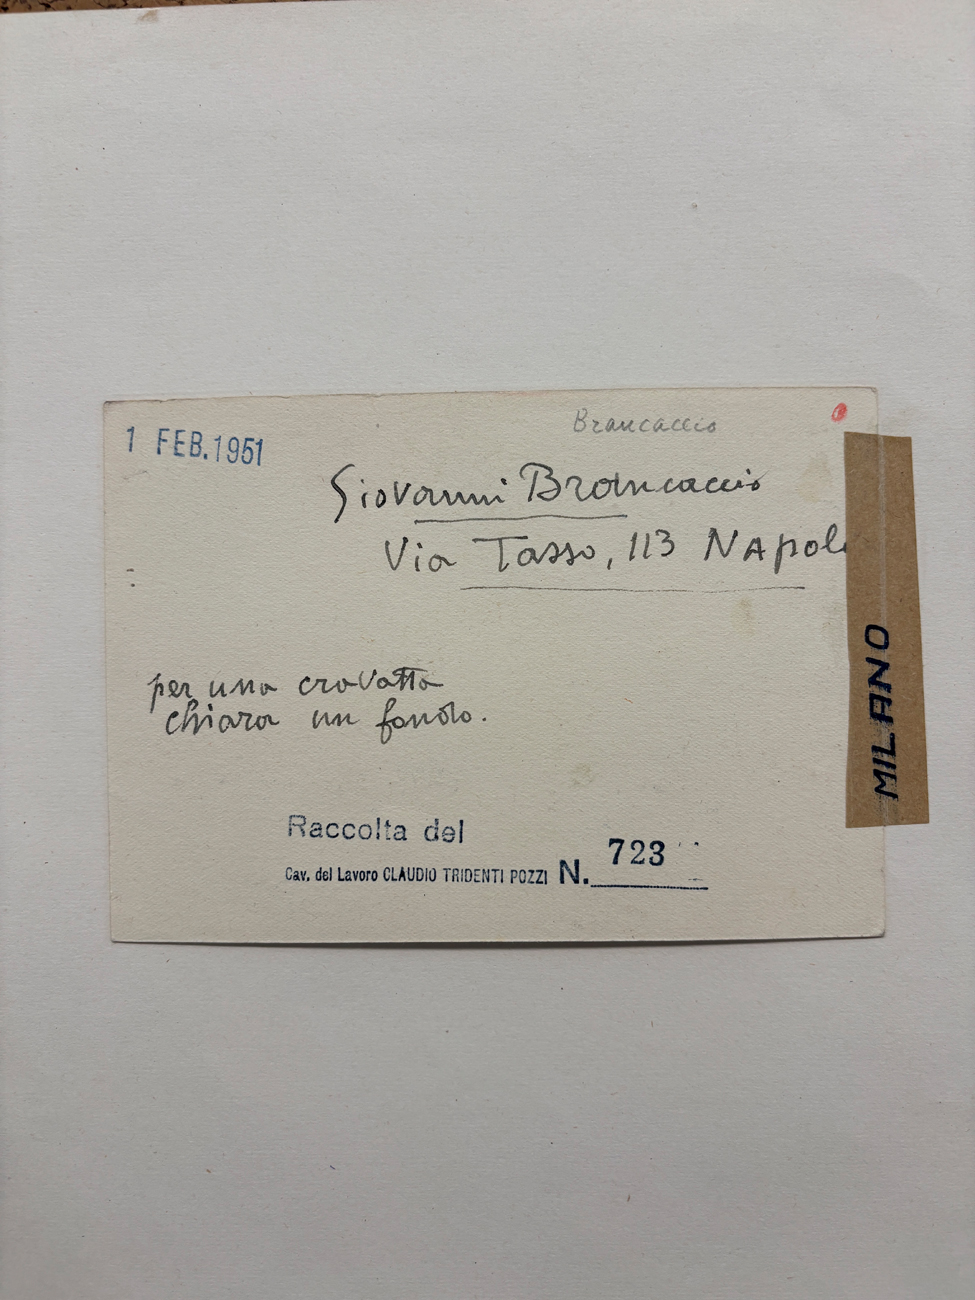 Brancaccio
1 FEB. 1951
Giovanni Brancaccio
Via Tasso, 113 Napoli
per una cravatta
chiara un
Raccolta del
Cav. del Lavoro CLAUDIO TRIDENTI POZZI N. 723
MILANO